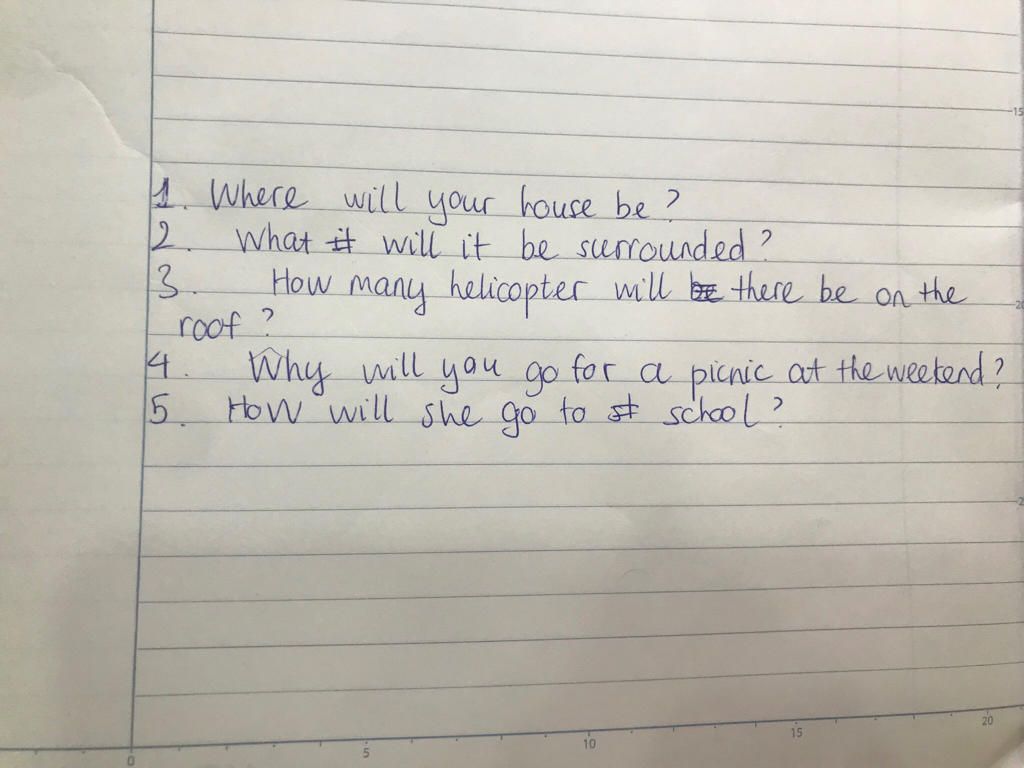 1. Where will your house be?
2. What will it be surrounded?
3. How many helicopter will there be on the
roof?
4. Why will you go for a picnic at the weekend?
5. How will she go to school?
15
20
0
5
10
15
20